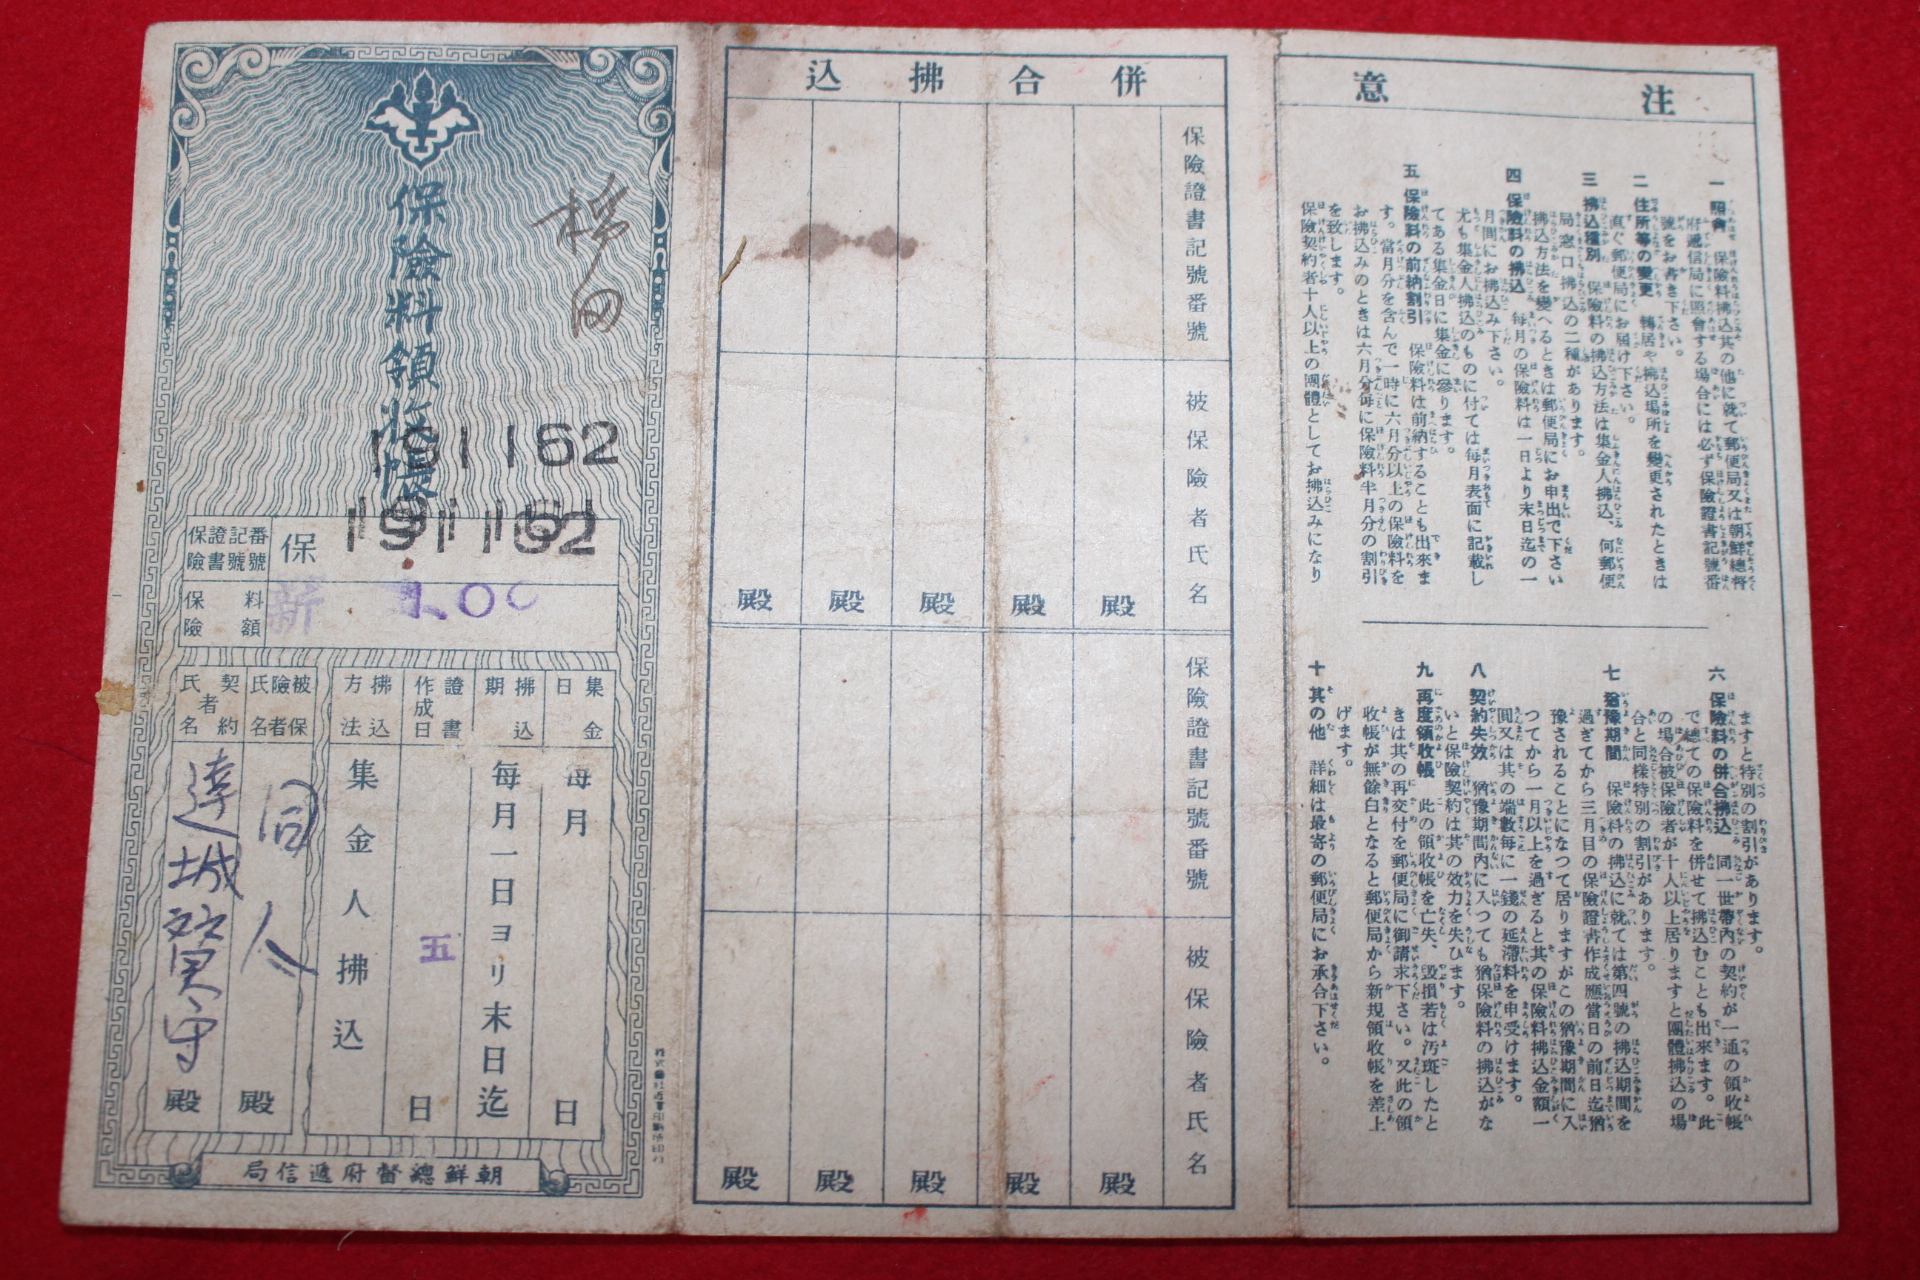 保險料領收帳
191162
保險證書記號番號
保
191162
保險料額
新
1.00
集金日
每月
日
拂込期
每月一日ヨリ末日迄
證書作成日
五
日
拂込方法
集金人拂込
被保險者氏名
同人
殿
契約者氏名
殿
朝鮮總督府遞信局
併合拂込
保險證書記號番號
被保險者氏名
殿
殿
殿
殿
殿
保險證書記號番號
被保險者氏名
殿
殿
殿
殿
殿
注意
一 照會 保險料拂込其の他に就て郵便局又は朝鮮總督
府遞信局に照會する場合には必ず保險證書記號番
號をお書き下さい。
二 住所等の變更 轉居や拂込場所を變更されたときは
直ぐ郵便局にお届け下さい。
三 拂込種別 保險料の拂込方法は集金人拂込、何郵便
局窓口拂込の二種があります。
拂込方法を變へるときは郵便局にお申出で下さい
四 保險料の拂込 每月の保險料は一日より末日迄の一
月間にお拂込み下さい。
尤も集金人拂込のものに付ては每月表面に記載し
てある集金日に集金に參ります。
五 保險料の前納割引 保險料は前納することも出來ま
す。當月分を含んで一時に六月分以上の保險料を
お拂込みのときは六月分每に保險料半月分の割引
を致します。
保險契約者十人以上の團體としてお拂込みになり
ますと特別の割引があります。
六 保險料の併合拂込 同一世帶內の契約が一通の領收帳
で總ての保險料を併せて拂込むことも出來ます。此
の場合被保險者が十人以上居りますと團體拂込の場
合と同樣特別の割引があります。
七 猶豫期間 保險料の拂込に就ては第四號の拂込期間を
過ぎてから三月目の保險證書作成應當日の前日迄猶
豫されることになつて居りますがこの猶豫期間に入
つてから一月以上を過ぎると其の保險料拂込金額一
圓又は其の端數每に一錢の延滯料を申受けます。
八 契約失效 猶豫期間內に入つても猶保險料の拂込がな
いと保險契約は其の效力を失ひます。
九 再度領收帳 此の領收帳を亡失、毀損若は汚斑したと
きは其の再交付を郵便局に御請求下さい。又此の領
收帳が無餘白となると郵便局から新規領收帳を差上
げます。
十 其の他 詳細は最寄の郵便局にお承合下さい。